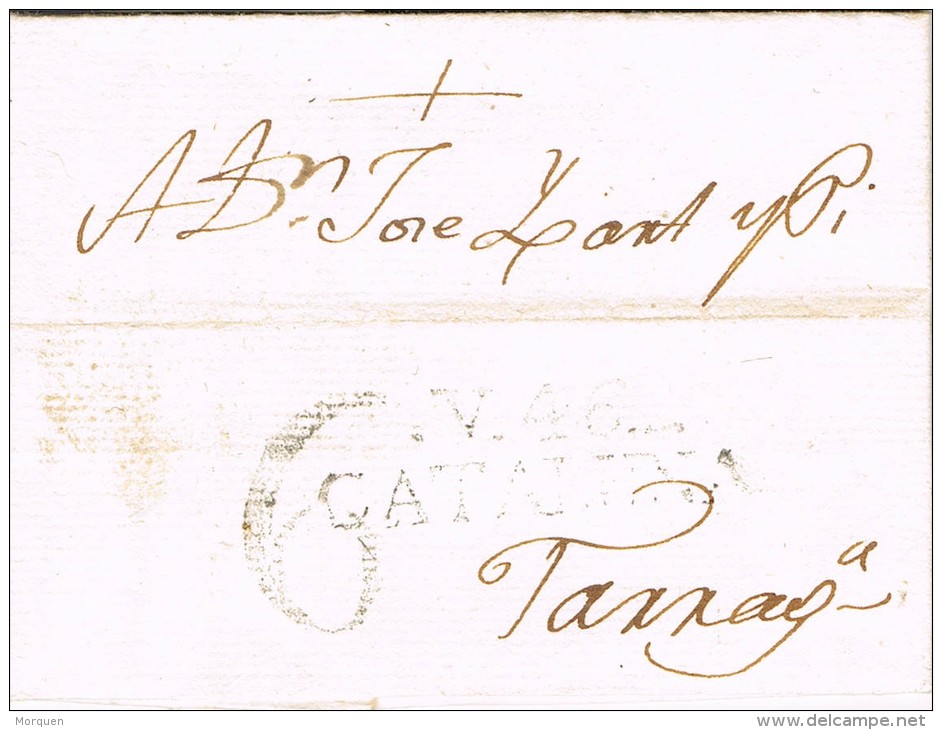 +
A Dn. Jose Xart y Pi
.V.46.
CATALUÑA
6
Tarraga
Morquen
delcampe.net